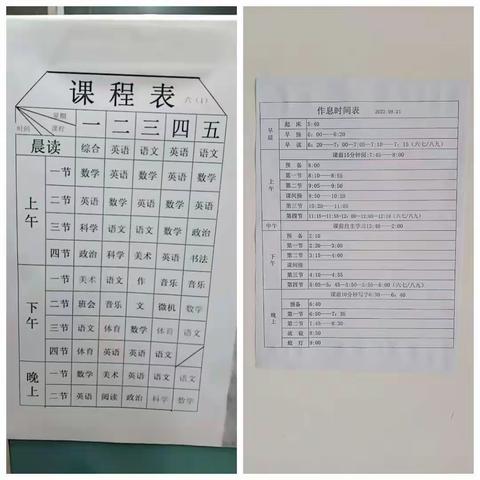 课程表 六(1)
星期
时间 课程 一 二 三 四 五
晨读 综合 英语 语文 英语 语文
上午 一节 数学 数学 英语 数学 数学
二节 英语 数学 英语 数学 英语
三节 科学 语文 语文 数学 政治
四节 政治 科学 美术 英语 书法
下午 一节 美术 语文 作 音乐 音乐
二节 班会 音乐 文 微机 数学
三节 语文 体育 数学 体育 语文
四节 体育 英语 英语 语文
晚上 一节 数学 美术 英语 语文 语文
二节 英语 阅读 政治 科学 数学
作息时间表 2022.09.21
早晨 起床 5:40
早操 6:00——6:20
早读 6:20—7:00-7:05-7:10——7:15(六七八九)
课前15分钟阅:7:45——8:00
上午 预备 8:00
第一节 8:10——8:55
第二节 9:05——9:50
课间操 9:50——10:20
第三节 10:20——11:05
第四节
中午
下午 预备 2:10
第一节 2:20——3:05
第二节 3:15——4:00
课间操
第三节 4:10——4:55
第四节
晚上 预备 6:40
第一节 6:50——7:35
第二节 7:45——8:30
就寝
熄灯 9:00